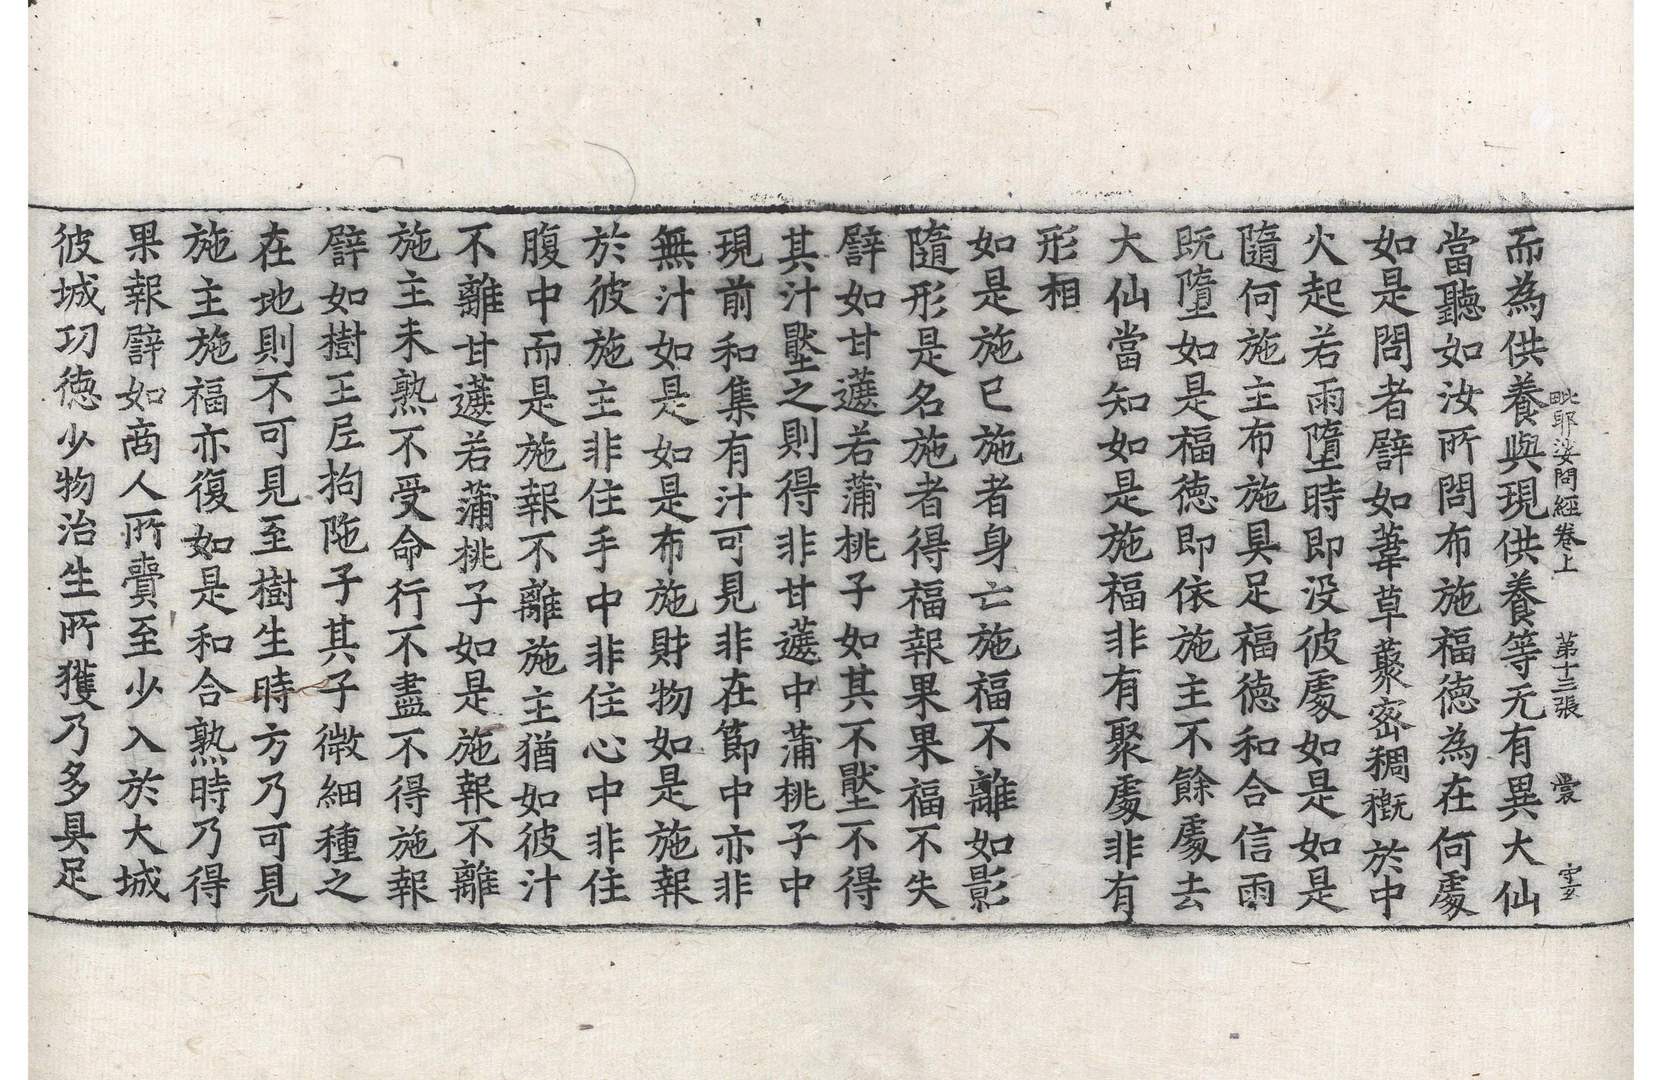 毗耶娑問經卷上　第十三張　裳
而為供養與現供養等无有異大仙
當聽如汝所問布施福德為在何處
如是問者譬如葦草藂密稠穊於中
火起若雨墮時即没彼處如是如是
隨何施主布施具足福德和合信雨
既墮如是福德即依施主不餘處去
大仙當知如是施福非有聚處非有
形相
如是施已施者身亡施福不離如影
隨形是名施者得福報果果福不失
譬如甘蔗若蒲桃子如其不壓不得
其汁壓之則得非甘蔗中蒲桃子中
現前和集有汁可見非在節中亦非
無汁如是如是布施財物如是施報
於彼施主非住手中非住心中非住
腹中而是施報不離施主猶如彼汁
不離甘蔗若蒲桃子如是施報不離
施主未熟不受命行不盡不得施報
譬如樹王𡰱拘陁子其子微細種之
在地則不可見至樹生時方乃可見
施主施福亦復如是和合熟時乃得
果報譬如商人所賷至少入於大城
彼城功德少物治生所獲乃多具足